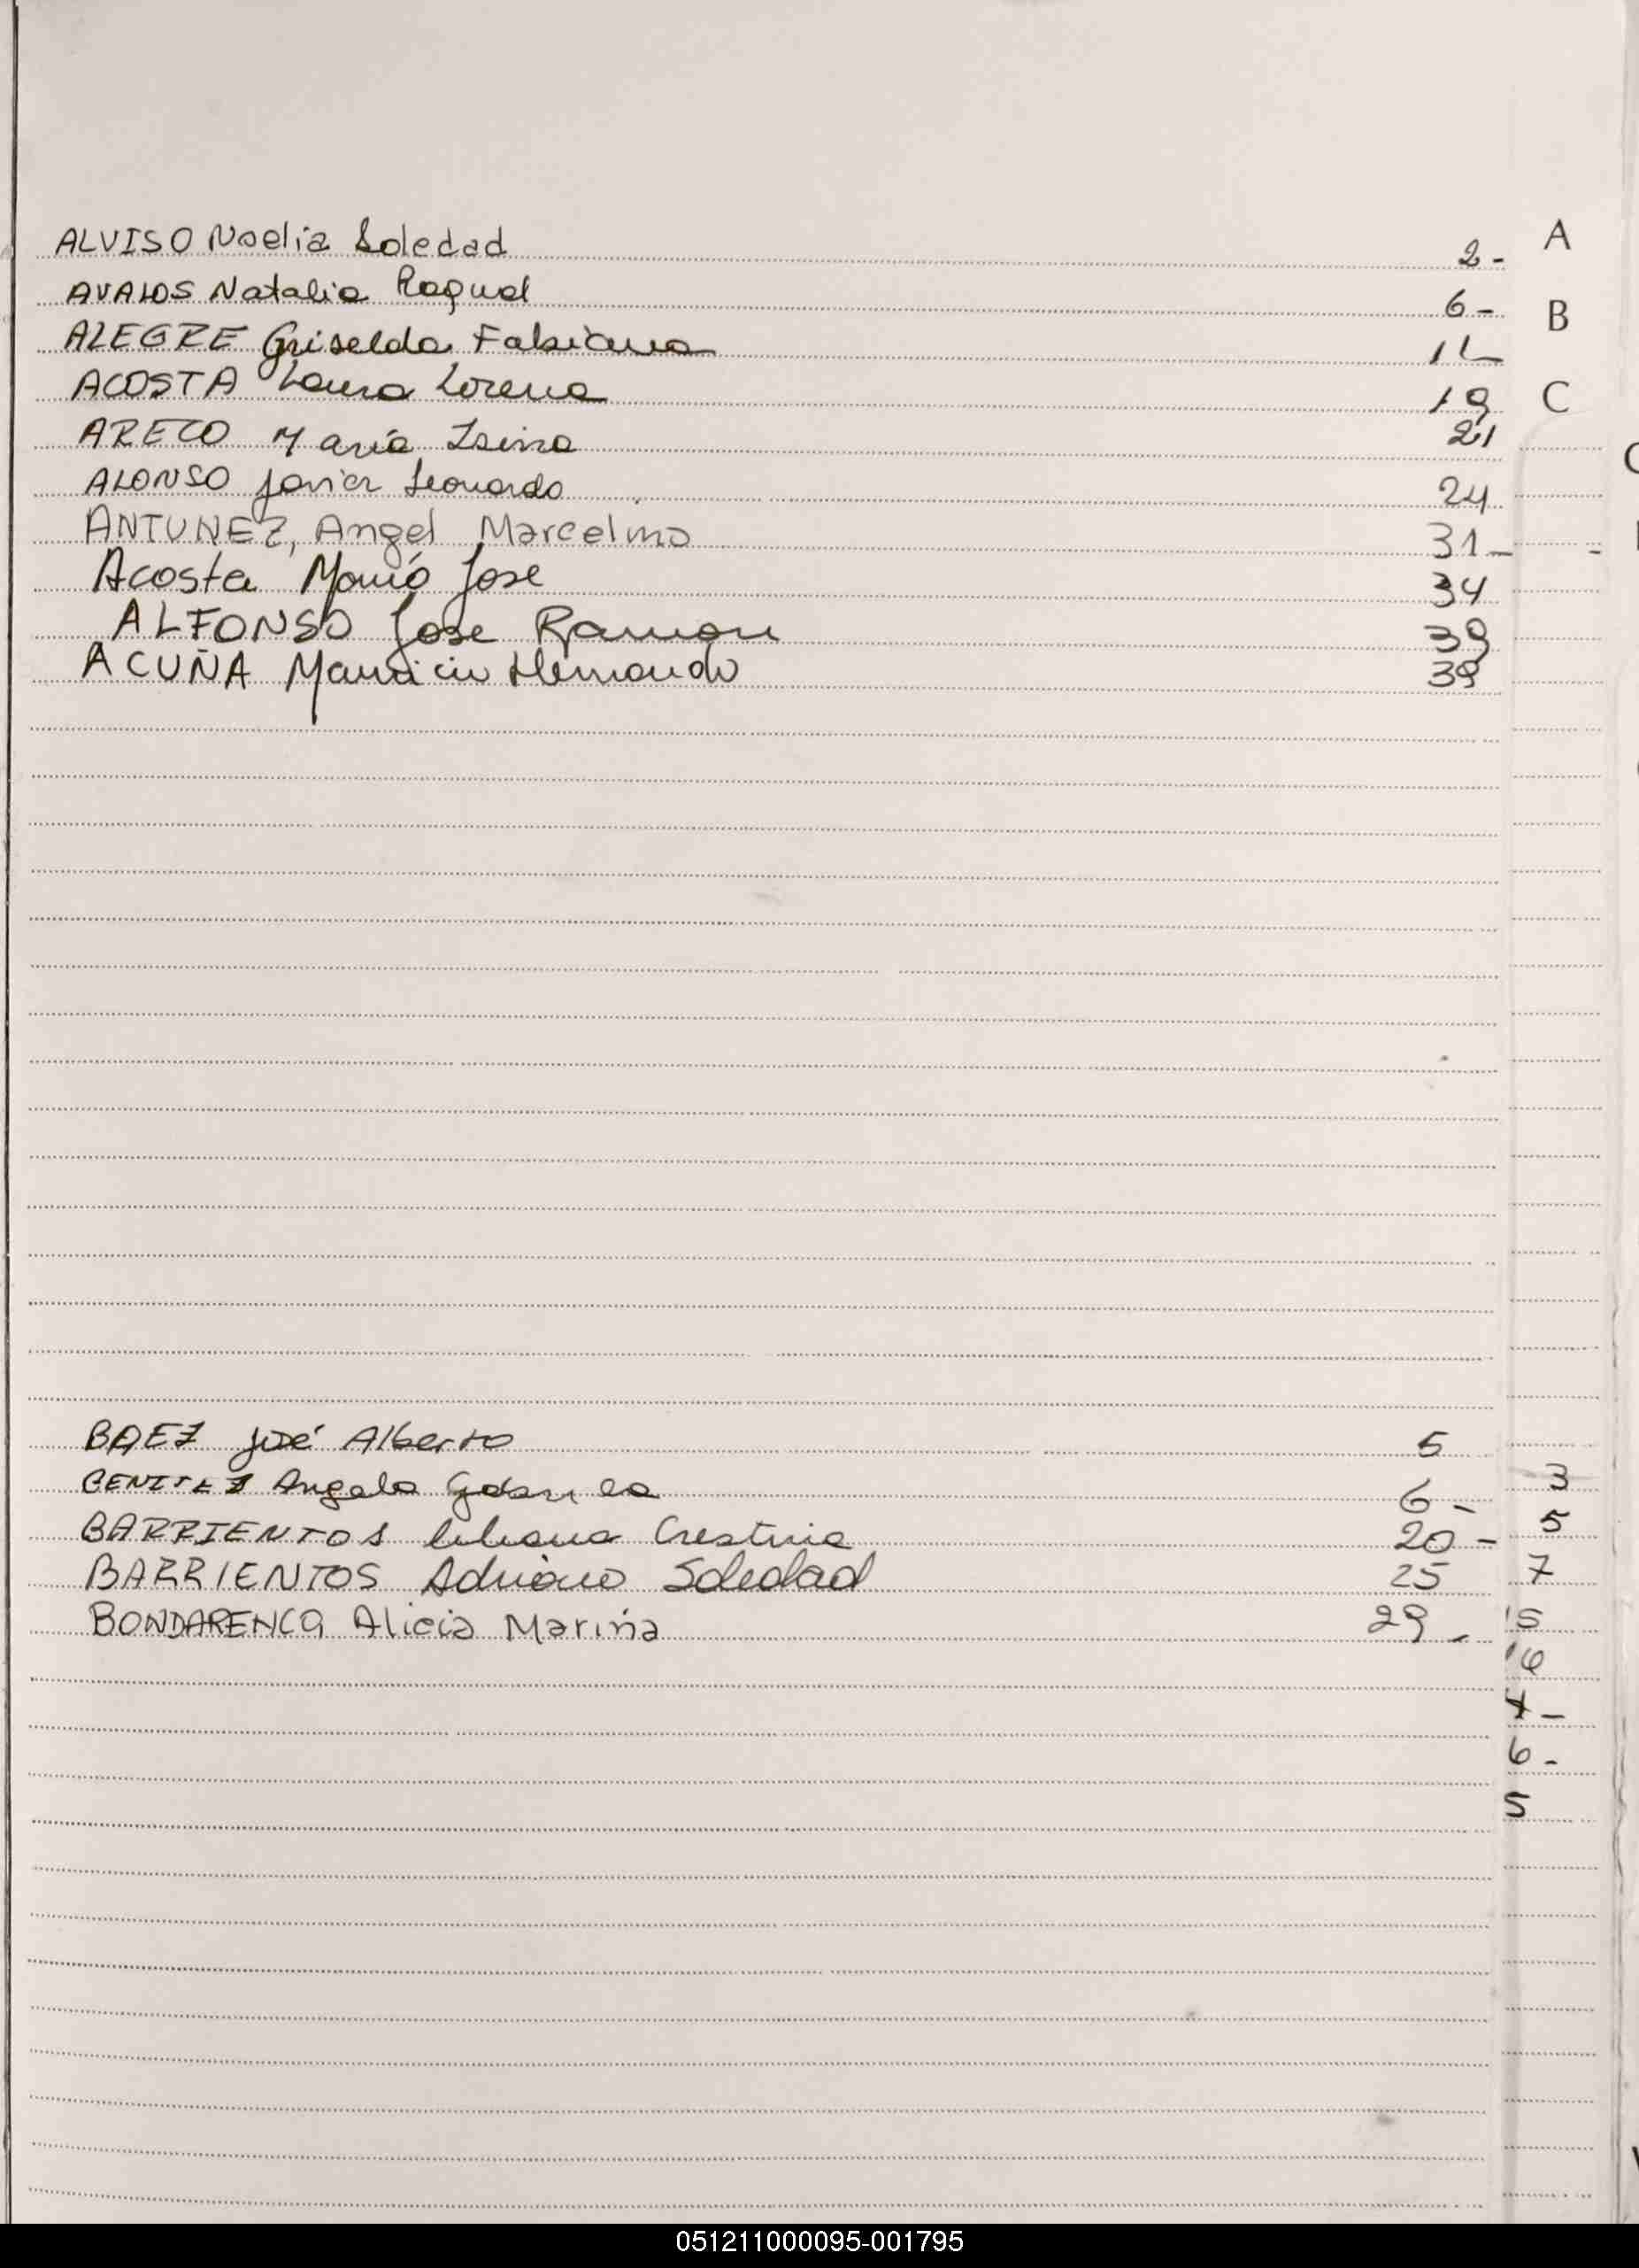 ALVISO Noelia Soledad 2 - A
AVALOS Natalia Raquel 6 - B
ALEGRE Griselda Fabiana
ACOSTA Laura Lorena 19 C
ARECO Maria 21
ALONSO Javier Leonardo 24
ANTUNEZ, Angel Marcelino 31 -
Acosta José 34
ALFONSO Jose Ramon 39
ACUÑA Mauricio Hernando 39
BAEZ José Alberto 5
BENITEZ Angela Gabriela 6 - 3
BARRIENTOS Liliana Cristina 20 - 5
BARRIENTOS Adriana Soledad 25 7
BONDARENCO Alicia Marina 29 - 15
6 -
5
051211000095-001795